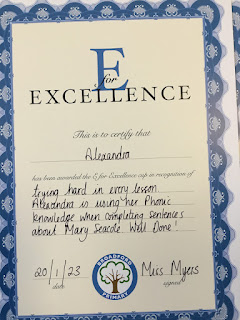 E
for
EXCELLENCE
This is to certify that
Alexandra
has been awarded the E for Excellence cup in recognition of
trying hard in every lesson.
Alexandra is using her Phonic
knowledge when completing sentences
about Mary Seacole. Well Done!
20/1/23
Miss Myers
date
signed
BROADFORD
PRIMARY